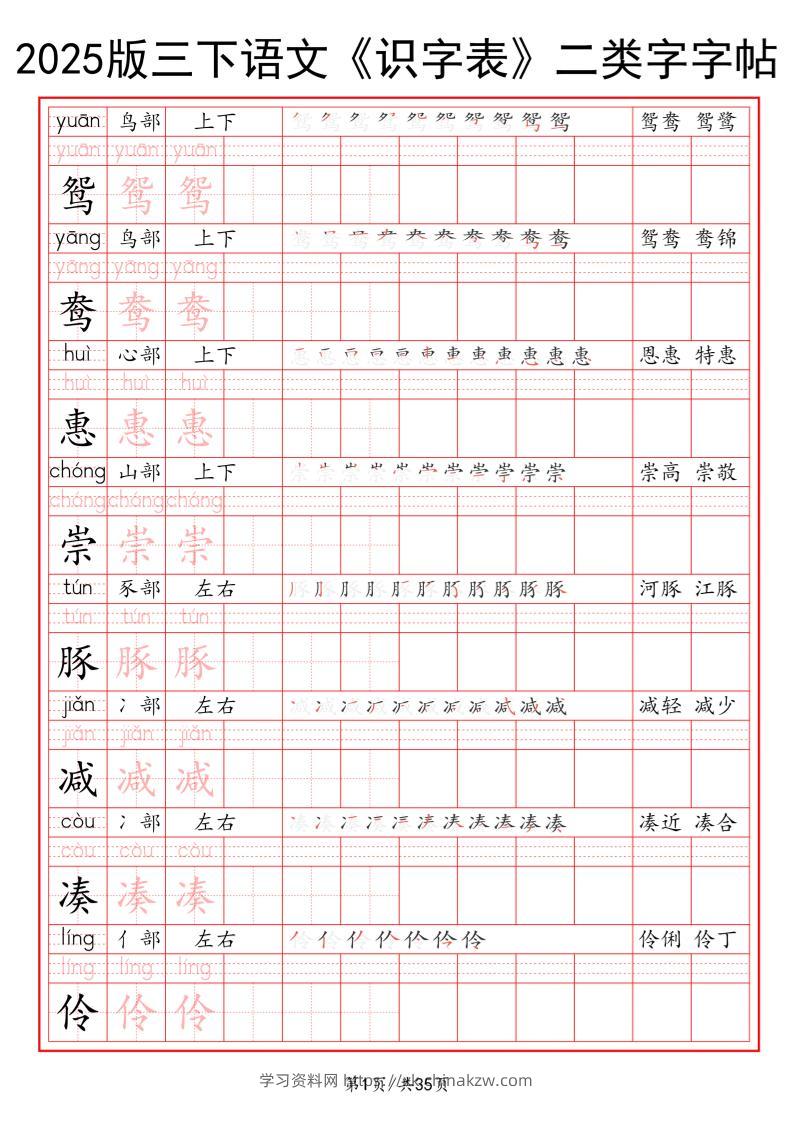 2025版三下语文《识字表》二类字字帖
yuān 鸟部 上下 鸳鸯 鸳鹭
yuān yuān yuān
鸳 鸳 鸳
yāng 鸟部 上下 鸳鸯 鸯锦
yāng yāng yāng
鸯 鸯 鸯
huì 心部 上下 恩惠 特惠
huì huì huì
惠 惠 惠
chóng 山部 上下 崇高 崇敬
chóng chóng chóng
崇 崇 崇
tún 豕部 左右 河豚 江豚
tún tún tún
豚 豚 豚
jiǎn 冫部 左右 减轻 减少
jiǎn jiǎn jiǎn
减 减 减
còu 冫部 左右 凑近 凑合
còu còu còu
凑 凑 凑
líng 亻部 左右 伶俐 伶丁
líng líng líng
伶 伶 伶
学习资料网
第1页/共35页